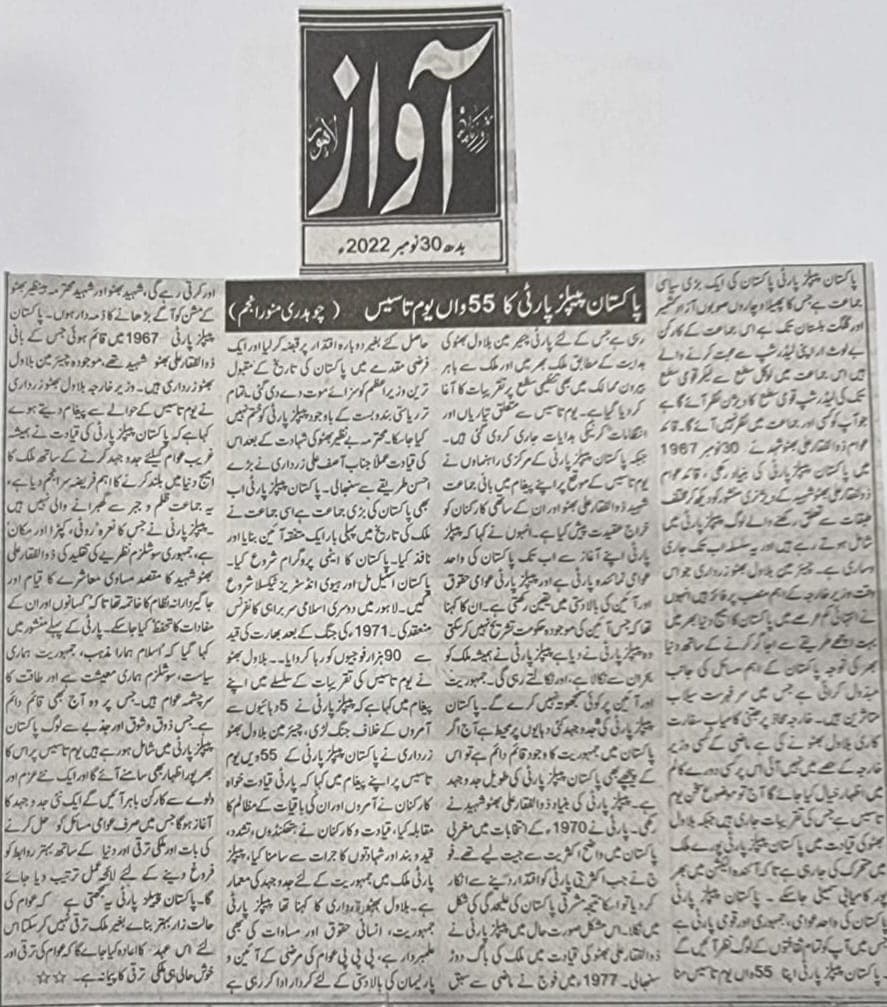 آواز
روزنامہ
لاہور
بدھ 30 نومبر 2022ء
پاکستان پیپلز پارٹی کا 55 واں یوم تاسیس (چوہدری منور انجم)
پاکستان پیپلز پارٹی پاکستان کی ایک بڑی سیاسی
جماعت ہے جس کا پھیلاؤ چاروں صوبوں آزاد کشمیر
اور گلگت بلتستان تک ہے اس جماعت کے کارکن
بے لوث اور اپنی لیڈر شپ سے محبت کرنے والے
ہیں اس جماعت میں لوکل سطح سے لیکر قومی سطح
تک کی لیڈر شپ قومی سطح کا ویژن نظر آئے گا ہے
جو آپ کو کسی اور جماعت میں نظر نہیں آئے گا۔ قائد
عوام ذوالفقار علی بھٹو شہید نے 30 نومبر 1967
میں پاکستان پیپلز پارٹی کی بنیاد رکھی، قائد عوام
ذوالفقار علی بھٹو شہید کے ویژنری منشور کو دیکھ کر مختلف
طبقات سے تعلق رکھنے والے لوگ پیپلز پارٹی میں
شامل ہوتے رہے ہیں اور یہ سلسلہ اب تک جاری
وساری ہے۔ چیئرمین بلاول بھٹو زرداری جو اس
وقت وزیر خارجہ کے اہم منصب پر فائز ہیں انہوں
نے انتہائی کم عرصے میں پاکستان کا امیج دنیا بھر میں
بہت اچھے طریقے سے اجاگر کرنے کے ساتھ دنیا
بھر کی توجہ پاکستان کے اہم مسائل کی جانب
مبذول کرائی ہے جس میں سرفہرست سیلاب
متاثرین ہیں۔ خارجہ محاذ پر جتنی کامیاب سفارت
کاری بلاول بھٹو نے کی ہے ماضی کے کسی وزیر
خارجہ کے حصے میں نہیں آئی اس پر کسی دوسرے کالم
میں اظہار خیال کیا جائے گا آج تو موضوع سخن یوم
تاسیس ہے جس کی تقریبات جاری ہیں جبکہ بلاول
بھٹو کی قیادت میں پیپلز پارٹی پورے ملک
میں متحرک کی جا رہی ہے تاکہ آئندہ الیکشن میں بھر
پور کامیابی سمیٹی جا سکے۔ پاکستان پیپلز پارٹی
پاکستان کی واحد عوامی، جمہوری اور قومی پارٹی ہے
جس میں آپ کو تمام ثقافتوں کے لوگ نظر آئیں گے
پاکستان پیپلز پارٹی اپنا 55 واں یوم تاسیس منا
رہی ہے جس کے لئے پارٹی چیئرمین بلاول بھٹو کی
ہدایت کے مطابق ملک بھر میں اور ملک سے باہر
بیرون ممالک میں بھی تنظیمی سطح پر تقریبات کا آغاز
کر دیا گیا ہے۔ یوم تاسیس سے متعلق تیاریاں اور
انتظامات کرنیکی ہدایات جاری کر دی گئی ہیں۔
جبکہ پاکستان پیپلز پارٹی کے مرکزی راہنماؤں نے
یوم تاسیس کے موقع پر اپنے پیغام میں بانی جماعت
شہید ذوالفقار علی بھٹو اور ان کے ساتھی کارکنان کو
خراج عقیدت پیش کیا ہے۔ انہوں نے کہا کہ پیپلز
پارٹی اپنے آغاز سے اب تک پاکستان کی واحد
عوامی نمائندہ پارٹی ہے اور پیپلز پارٹی عوامی حقوق
اور آئین کی بالادستی میں یقین رکھتی ہے۔ ان کا کہنا
تھا کہ جس آئین کی موجودہ حکومت تشریح نہیں کر سکتی
وہ پیپلز پارٹی نے دیا ہے پیپلز پارٹی نے ہمیشہ ملک کو
بحران سے نکالا ہے، اور نکالتے رہی گی۔ جمہوریت
اور آئین پر کوئی سمجھوتہ نہیں کرے گے۔ پاکستان
پیپلز پارٹی کی جدوجہد کئی دہائیوں پر محیط ہے آج اگر
پاکستان میں جمہوریت کا وجود قائم دائم ہے تو اس
کے پیچھے بھی پاکستان پیپلز پارٹی کی طویل جدوجہد
ہے۔ پیپلز پارٹی کی بنیاد ذوالفقار علی بھٹو شہید نے
رکھی۔ پارٹی نے 1970ء کے انتخابات میں مغربی
پاکستان میں واضح اکثریت سے جیت لیے تھے۔ فو
ج نے جب اکثریتی پارٹی کو اقتدار دینے سے انکار
کر دیا تو اسکا نتیجہ مشرقی پاکستان کی علیحدگی کی شکل
میں نکلا۔ اس مشکل صورت حال میں پیپلز پارٹی نے
ذوالفقار علی بھٹو کی قیادت میں ملک کی باگ دوڑ
سنبھالی۔ 1977ء میں فوج نے ماضی سے سبق
حاصل کئے بغیر دوبارہ اقتدار پر قبضہ کر لیا اور ایک
فرضی مقدمے میں پاکستان کی تاریخ کے مقبول
ترین وزیر اعظم کو سزائے موت دے دی گئی۔ تمام
تر ریاستی بندوبست کے باوجود پیپلز پارٹی کو ختم نہیں
کیا جا سکا۔ محترمہ بے نظیر بھٹو کی شہادت کے بعد اس
کی قیادت عملاً جناب آصف علی زرداری نے بڑے
احسن طریقے سے سنبھالی۔ پاکستان پیپلز پارٹی اب
بھی پاکستان کی بڑی جماعت ہے اسی جماعت نے
ملک کی تاریخ میں پہلی بار ایک متفقہ آئین بنایا اور
نافذ کیا۔ پاکستان کا ایٹمی پروگرام شروع کیا۔
پاکستان اسٹیل مل اور ہیوی انڈسٹریز ٹیکسلا شروع
کیں۔ لاہور میں دوسری اسلامی سربراہی کانفرنس
منعقد کی۔ 1971ء کی جنگ کے بعد بھارت کی قید
سے 90 ہزار فوجیوں کو رہا کروایا۔۔ بلاول بھٹو
نے یوم تاسیس کی تقریبات کے سلسلے میں اپنے
پیغام میں کہا ہے کہ پیپلز پارٹی نے 5 دہائیوں سے
آمروں کے خلاف جنگ لڑی، چیئرمین بلاول بھٹو
زرداری نے پاکستان پیپلز پارٹی کے 55 ویں یوم
تاسیس پر اپنے پیغام میں کہا کہ پارٹی قیادت خواہ
کارکنان نے آمروں اور ان کی باقیات کے مظالم کا
مقابلہ کیا، قیادت و کارکنان نے ہتھکنڈوں، تشدد،
قید و بند اور شہادتوں کا جرات سے سامنا کیا، پیپلز
پارٹی ملک میں جمہوریت کے لئے جدوجہد کی معمار
ہے۔ بلاول بھٹو زرداری کا کہنا تھا پیپلز پارٹی
جمہوریت، انسانی حقوق اور مساوات کی بھی
علمبردار ہے، پی پی پی عوام کی مرضی کے آئین و
پارلیمان کی بالادستی کے لئے کردار ادا کر رہی ہے
اور کرتی رہے گی، شہید بھٹو اور شہید محترمہ بینظیر بھٹو
کے مشن کو آگے بڑھانے کا ذمہ دار ہوں۔ پاکستان
پیپلز پارٹی 1967 میں قائم ہوئی جس کے بانی
ذوالفقار علی بھٹو شہید تھے، موجودہ چیئرمین بلاول
بھٹو زرداری ہیں۔ وزیر خارجہ بلاول بھٹو زرداری
نے یوم تاسیس کے حوالے سے پیغام دیتے ہوے
کہا ہے کہ پاکستان پیپلز پارٹی کی قیادت نے ہمیشہ
غریب عوام کیلئے جدوجہد کرنے کے ساتھ ملک کا
امیج دنیا میں بلند کرنے کا اہم فریضہ سر انجام دیا ہے،
یہ جماعت ظلم و جبر سے گھبرانے والی نہیں ہیں
۔ پیپلز پارٹی نے جس کا نعرہ 'روٹی، کپڑا اور مکان'
ہے، جمہوری سوشلزم نظریے کی تقلید کی ذوالفقار علی
بھٹو شہید کا مقصد مساوی معاشرے کا قیام اور
جاگیردارانہ نظام کا خاتمہ تھا تاکہ کسانوں اور ان کے
مفادات کا تحفظ کیا جا سکے۔ پارٹی کے پہلے منشور میں
کہا گیا کہ اسلام ہمارا مذہب، جمہوریت ہماری
سیاست، سوشلزم ہماری معیشت ہے اور طاقت کا
سرچشمہ عوام ہیں۔ جس پر وہ آج بھی قائم دائم
ہے۔ جس ذوق و شوق اور جذبے سے لوگ پاکستان
پیپلز پارٹی میں شامل ہو رہے ہیں یوم تاسیس پر اس کا
بھرپور اظہار بھی سامنے آئے گا اور ایک نئے عزم اور
ولولے سے کارکن باہر آئیں گے ایک نئی جدوجہد کا
آغاز ہو گا جس میں صرف عوامی مسائل کو حل کرنے
کی بات اور ملکی ترقی اور دنیا کے ساتھ بہتر روابط کو
فروغ دینے کے لئے لائحہ عمل ترتیب دیا جائے
گا۔ پاکستان پیپلز پارٹی یہ سمجھتی ہے کہ عوام کی
حالت زار بہتر بنائے بغیر ملک ترقی نہیں کر سکتا اس
لئے اس عہد کا اعادہ کیا جائے گا کہ عوام کی ترقی اور
خوش حالی ہی ملکی ترقی کا پیمانہ ہے۔ ☆☆